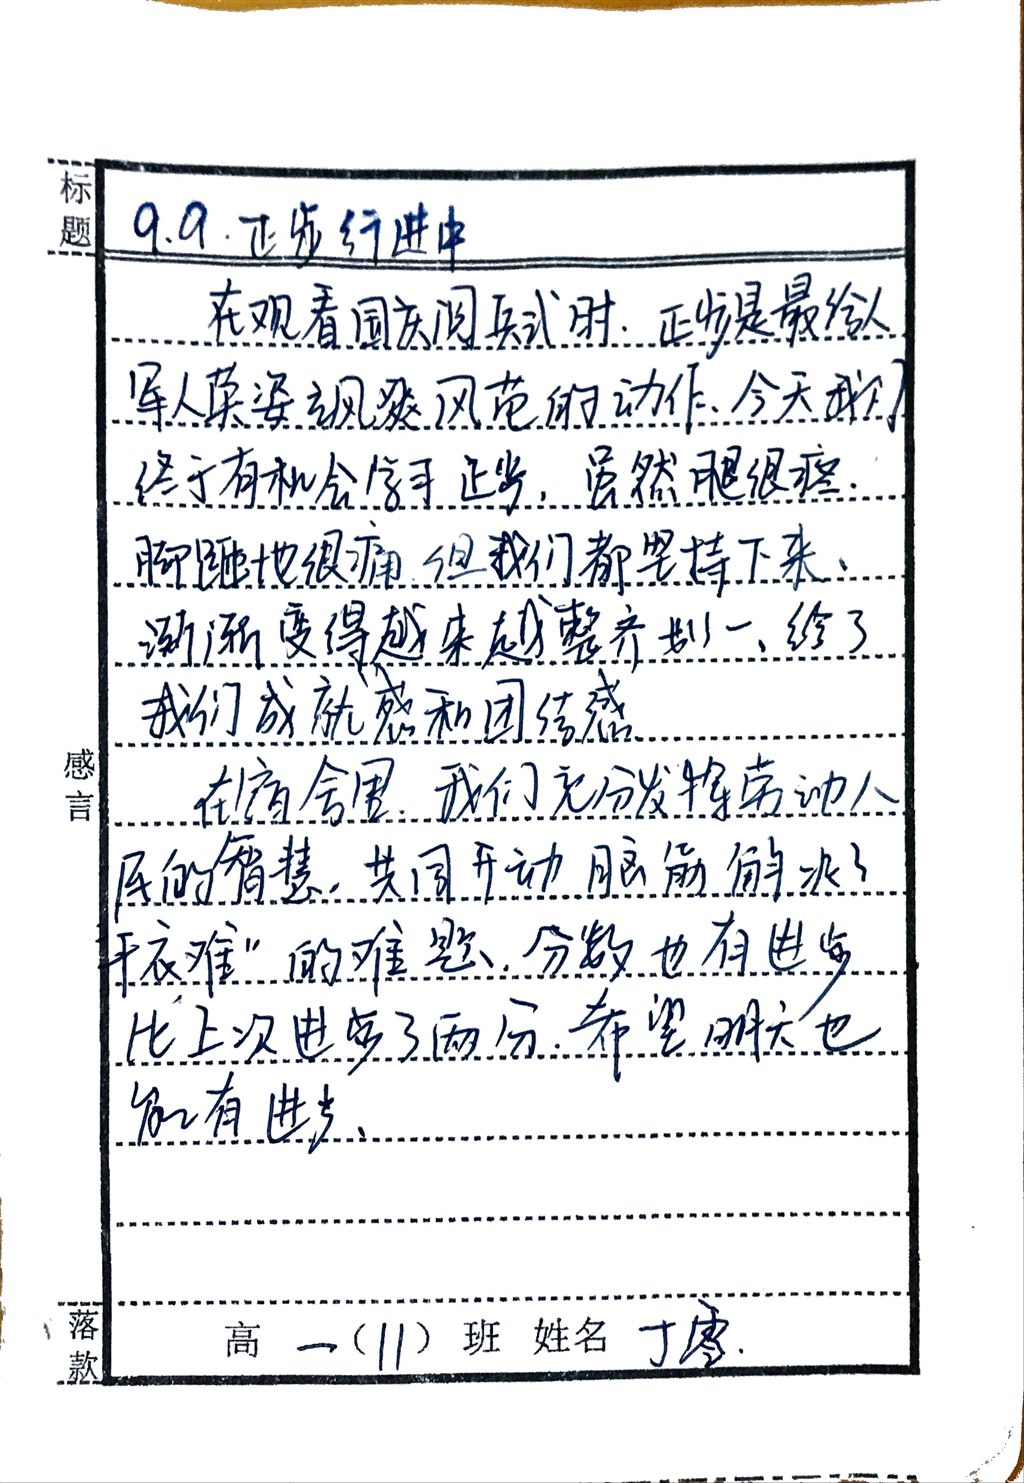 标题
9.9.正步行进中
在观看国庆阅兵式时.正步是最给人
军人英姿飒爽风范的动作、今天我们
终于有机会学习正步,虽然腿很疼.
脚踩地很痛.但我们都坚持下来、
渐渐变得越来越整齐划一、给了
我们成就感和团结感
感言
在宿舍里.我们充分发挥劳动人
民的智慧.共同开动脑筋解决了
干衣难"的难题.分数也有进步
比上次进步了两分.希望明天也
能有进步、
落款
高一(11)班 姓名 丁